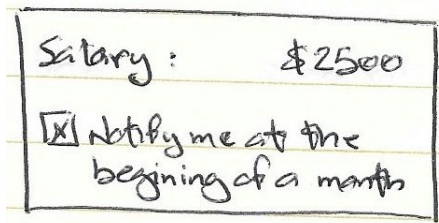 Salary: $2500
☒ Notify me at the
begining of a month